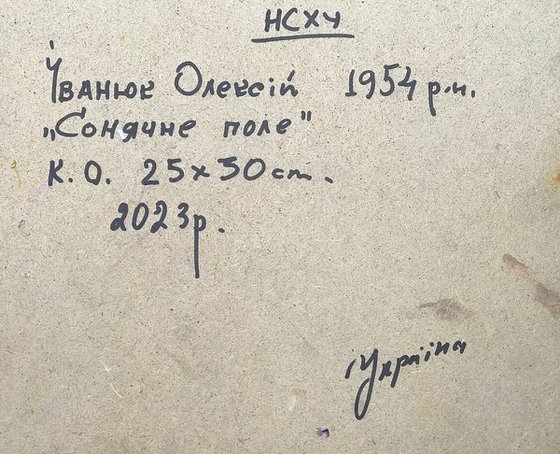 НСХУ
Іванюк Олексій 1954 р.н.
„Сонячне поле"
К.О. 25х30 ст.
2023р.
Україна